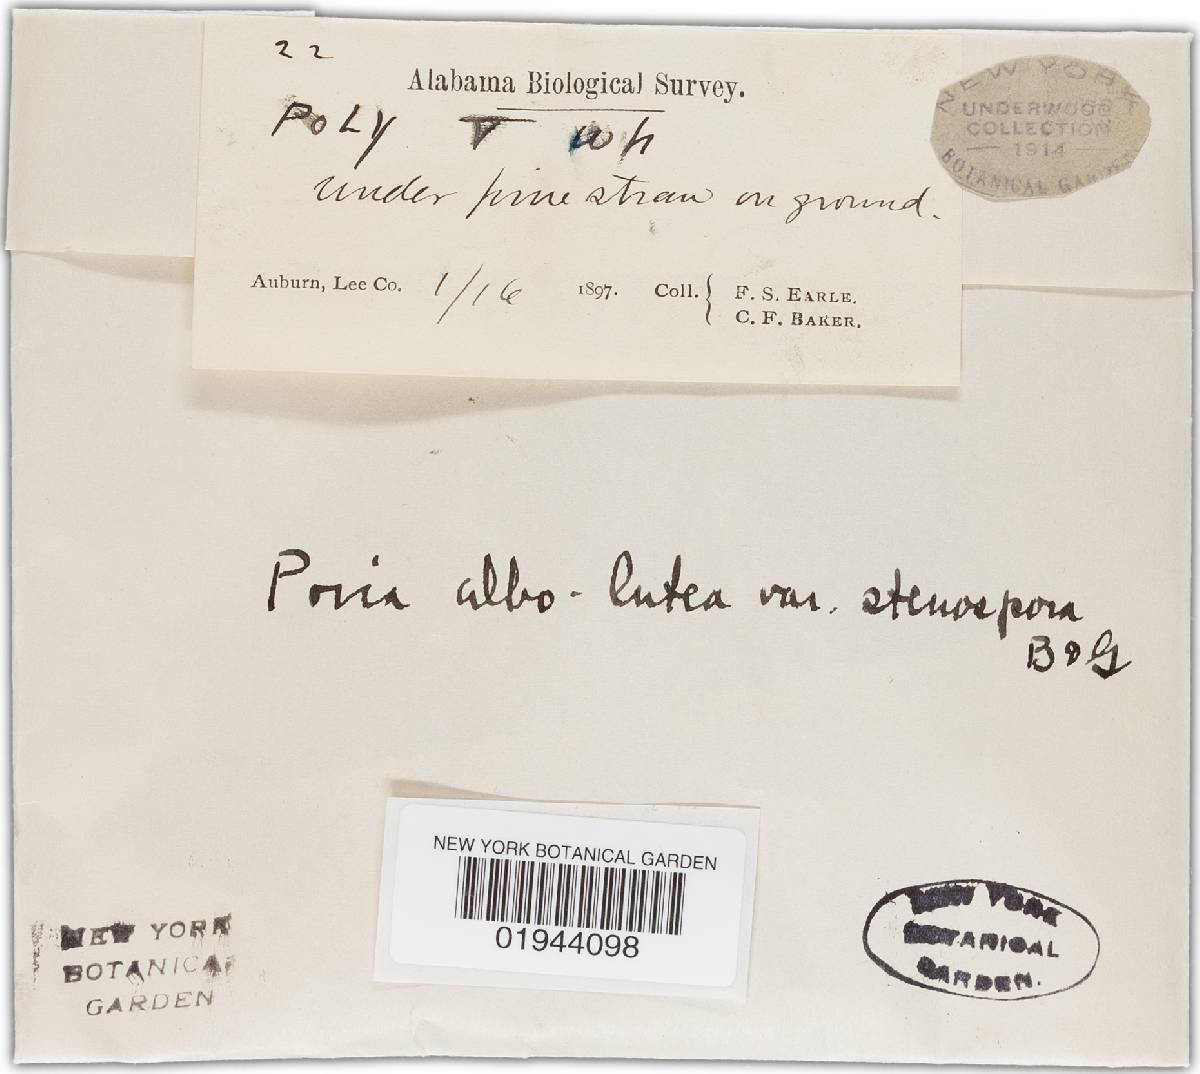 22
Alabama Biological Survey.
POLY T wh
under pine straw on ground.
Auburn, Lee Co. 1/16 1897. Coll. { F. S. EARLE.
C. F. BAKER.
NEW YORK
UNDERWOOD
COLLECTION
— 1914 —
BOTANICAL GARDEN
Poria albo-lutea var. stenospora
B & G
NEW YORK BOTANICAL GARDEN
01944098
NEW YORK
BOTANICAL
GARDEN
NEW YORK
BOTANICAL
GARDEN.